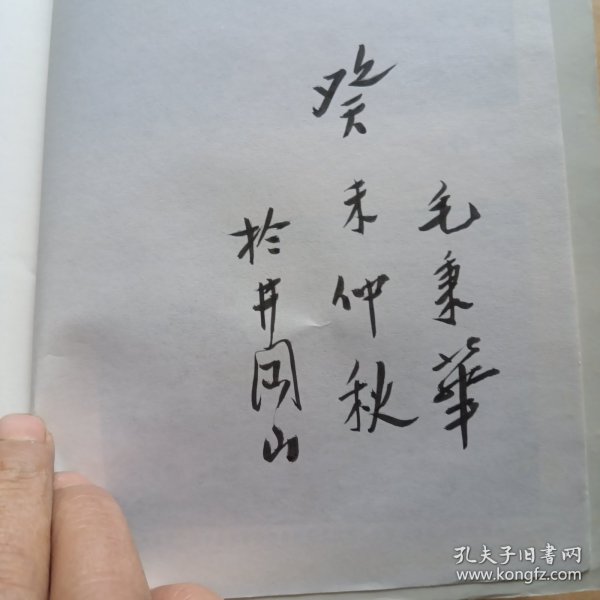 毛秉華
癸未仲秋
於井岡山
孔夫子旧書网
www.kongfz.com